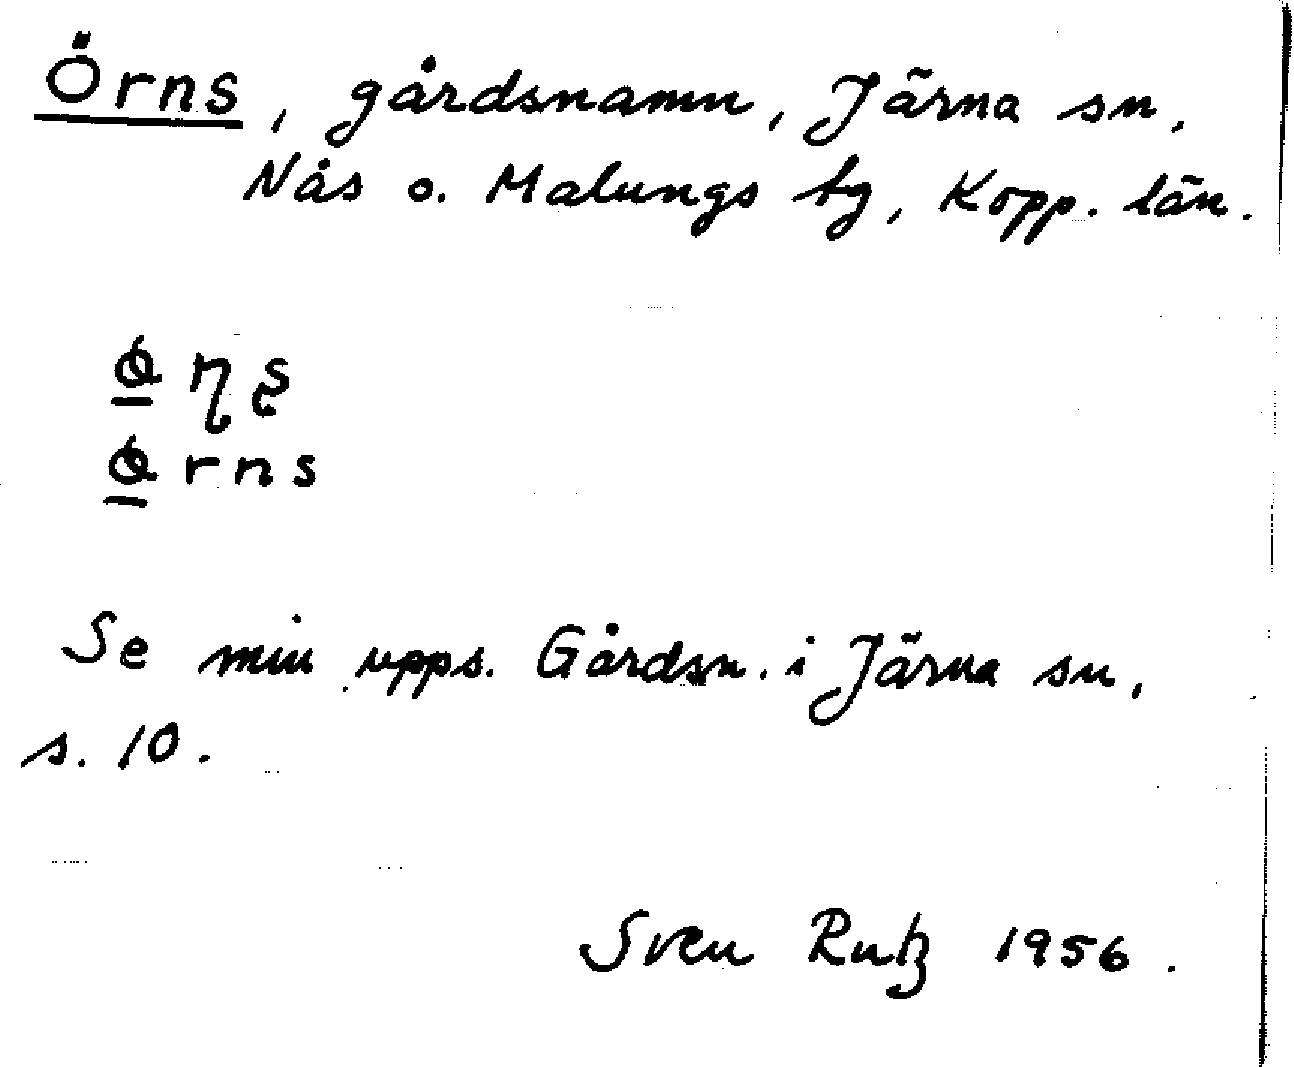 Örns, gårdsnamn, Järna sn,
Nås o. Malungs tg, Kopp. län.
Se min upps. Gårdsn. i Järna sn,
s. 10.
Sven Rutz 1956.